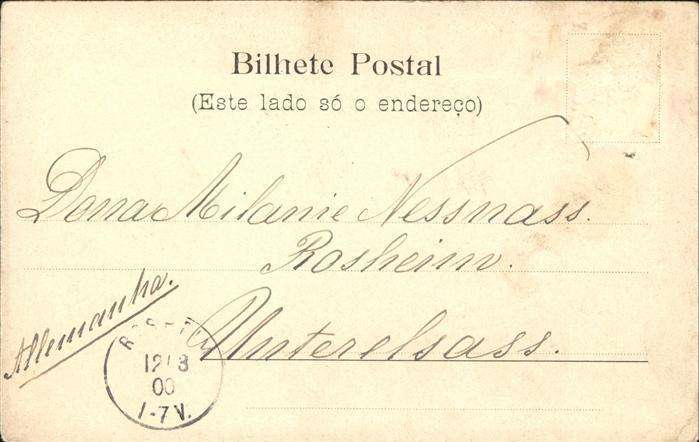 Bilhete Postal
(Este lado só o endereço)
Dona Milanie Nessnass.
Rosheim.
Allemanha.
Unterelsass.
12 8
00
1-7V.